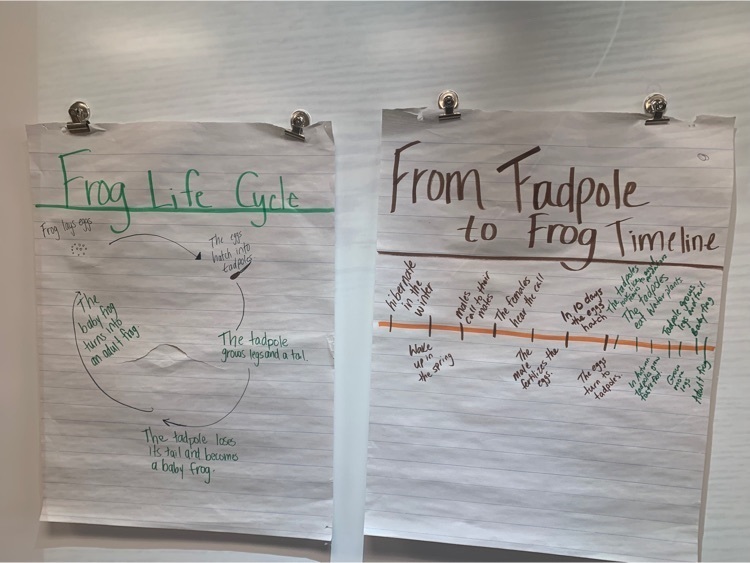 Frog Life Cycle
Frog lays eggs
The eggs
hatch into
tadpoles
The tadpole
grows legs and a tail.
The tadpole loses
its tail and becomes
a baby frog.
The
baby frog
turns into
an adult frog
From Tadpole
to Frog Timeline
hibernate
in the
winter
Wake
up in
the spring
males
call to their
mates
The females
hear the call
The
male
fertilizes the
eggs.
In 10 days
the eggs
hatch
The eggs
turn to
tadpoles.
The tadpoles
The tadpoles
eat water plants
In Autumn
tadpole
Tadpole grows
legs and tail
Grow
more
legs
Baby frog
Adult frog